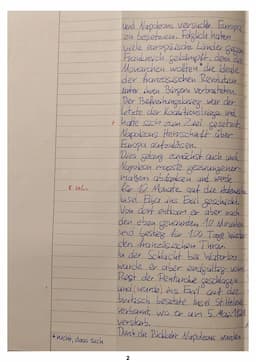 und Napoleons versuchte Europa
zu besetzen. Folglich haben
viele europäische Länder gegen
Frankreich gekämpft, denn die
Monarchen wollten* die Ideale
der französischen Revolution
unter ihren Bürgern verbreiteten.
Der Befreiungskrieg war der
letzte der Koalitionskriege und
hatte sich zum Ziel gesetzt,
Napoleons Herrschaft über
Europa aufzulösen.
Dies gelang zunächst auch und
Napoleon musste gezwungener-
maßen abdanken und wurde
für 12 Monate auf die
Insel Elba ins Exil geschickt.
Von dort entkam er aber nach
den eben genannten 12 Monaten
und bestieg für 100 Tage
den französischen Thron.
In der Schlacht bei Waterloo
wurde er aber endgültig vom
Rest der geschlagen
und wurde ins Exil auf die
britisch besetzte Insel St. Helena
verbannt, wo er am 5. Mai
verstarb.
* nicht, dass sich
Durch die Rückkehr Napoleons wurden
2